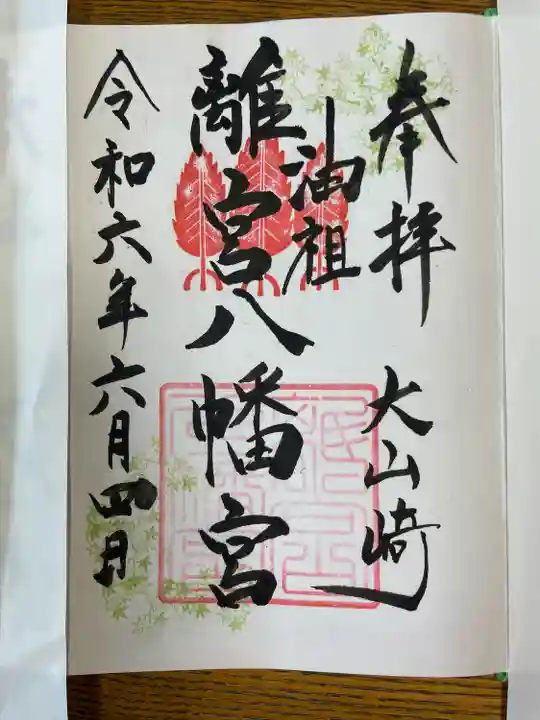 奉拝 大山崎
油祖
離宮八幡宮
令和六年六月四日